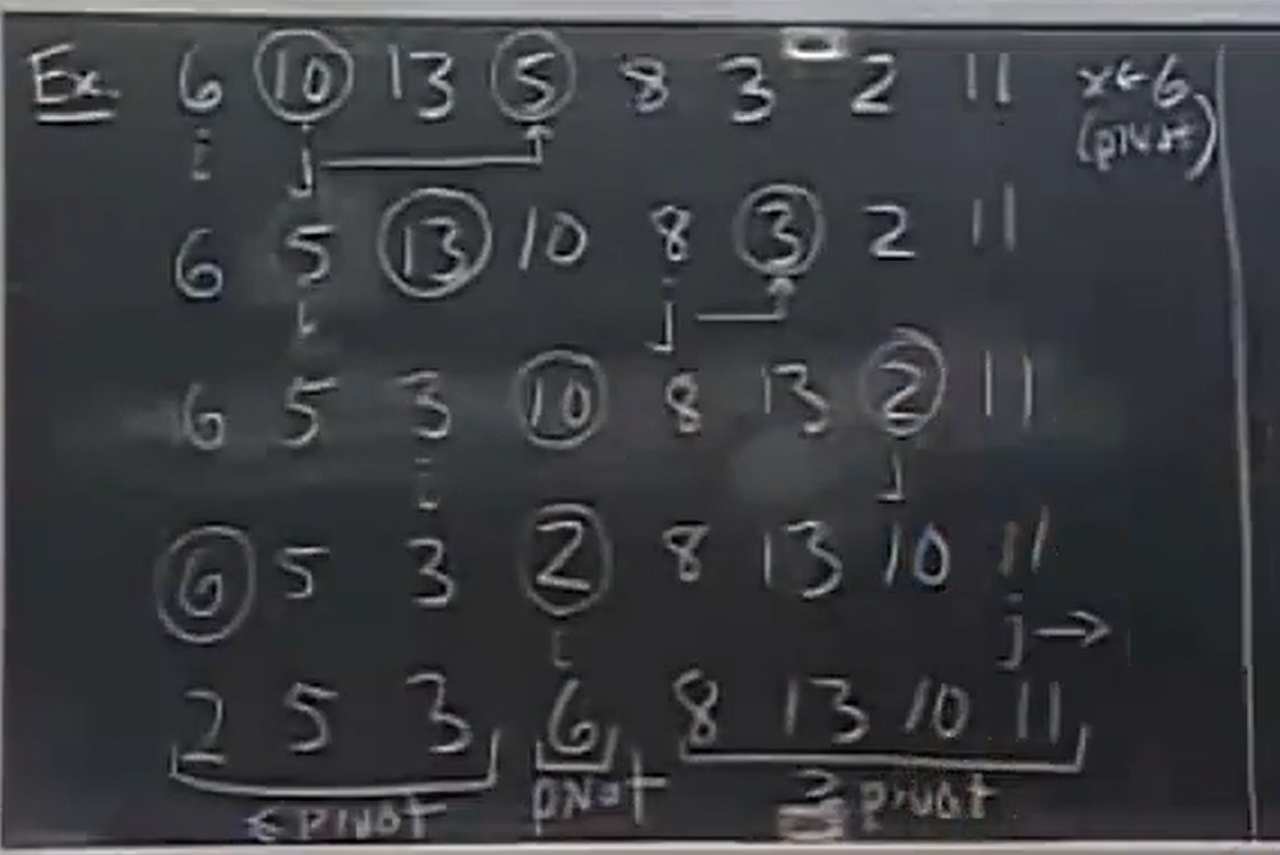 Ex. 6 10 13 5 8 3 2 11 x← 6
(pivot)
i j
6 5 13 10 8 3 2 11
i j
6 5 3 10 8 13 2 11
i j
6 5 3 2 8 13 10 11
i j →
2 5 3 6 8 13 10 11
≤ pivot pivot ≥ pivot